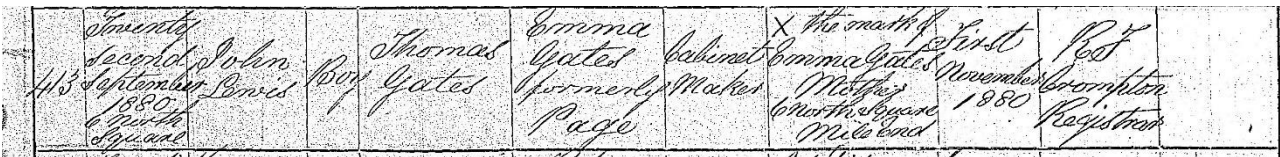 413
Twenty
second
September
1880
6 North
Square
John
Lewis
Boy
Thomas
Gates
Emma
Gates
formerly
Page
Cabinet
Maker
X the mark of
Emma Gates
Mother
6 North Square
Mile End
First
November
1880
R J
Crompton
Registrar